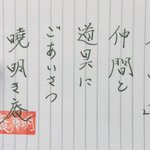 仲間と
道具に
ごあいさつ
曉明き庵